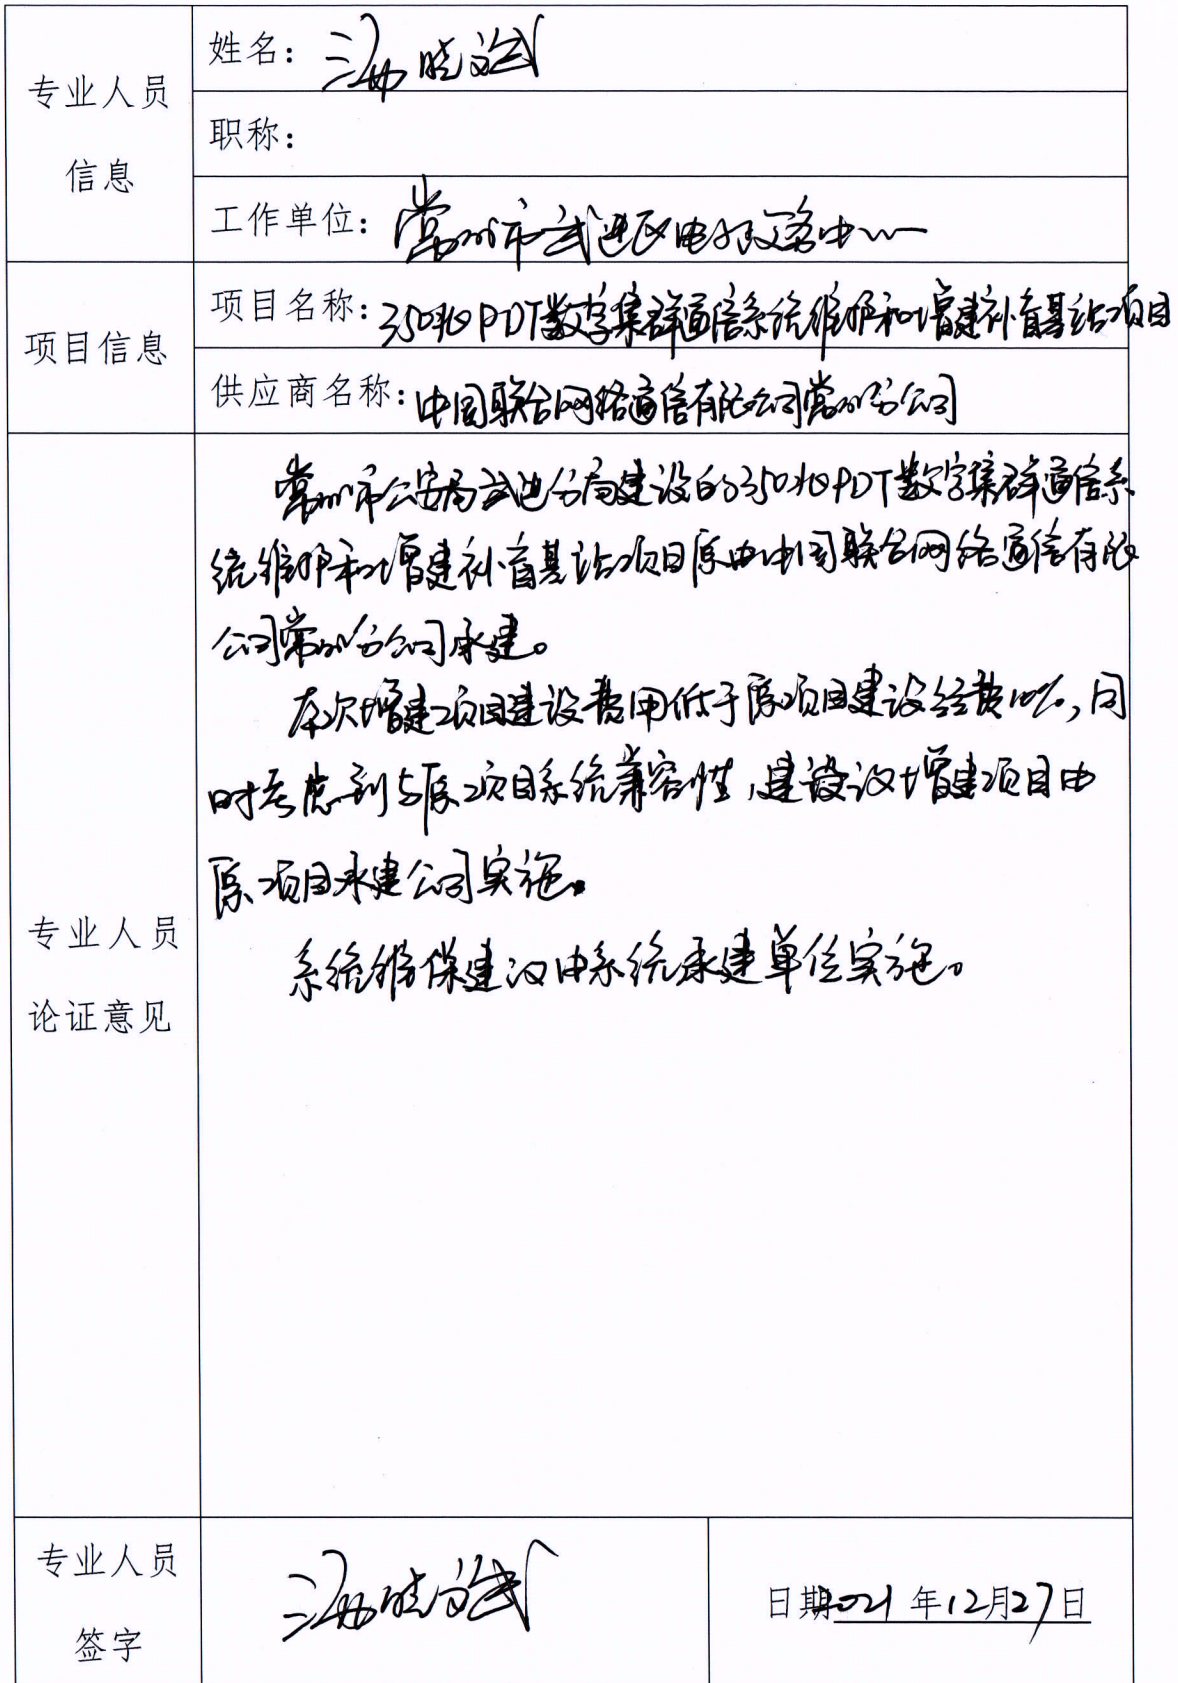 专业人员
信息
姓名：
职称：
工作单位：常州市武进区电子政务中心
项目信息
项目名称：350兆PDT数字集群通信系统维护和增建补盲基站项目
供应商名称：中国联合网络通信有限公司常州分公司
专业人员
论证意见
常州市公安局武进分局建设的350兆PDT数字集群通信系
统维护和增建补盲基站项目原由中国联合网络通信有限
公司常州分公司承建。
本次增建项目建设费用低于原项目建设经费10%，同
时考虑到与原项目系统兼容性，建设议增建项目由
原项目承建公司实施。
系统维保建议由系统承建单位实施。
专业人员
签字
日期2021年12月27日